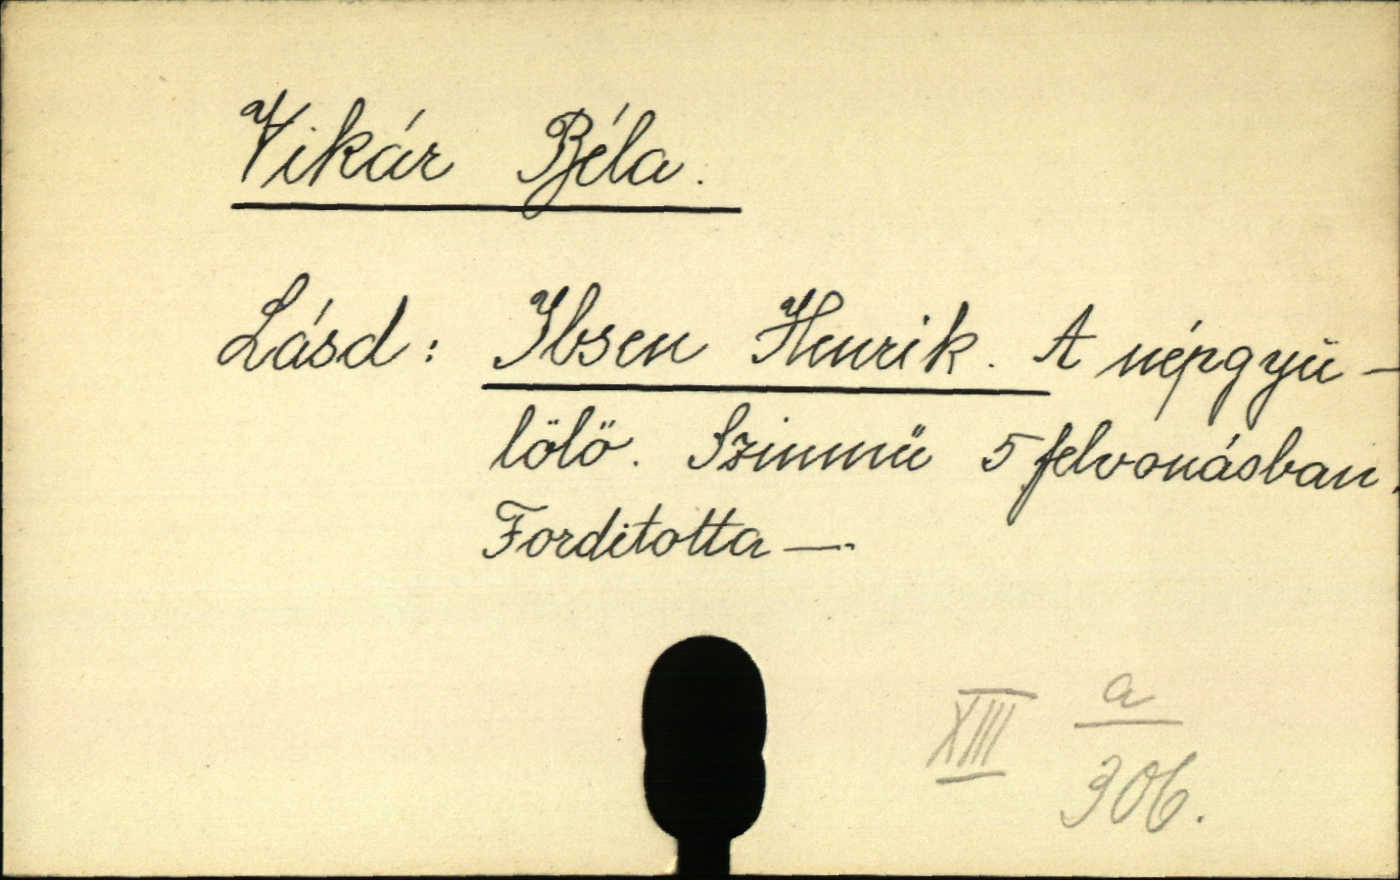 Vikár Béla.
Lásd: Ibsen Henrik. A népgyü-
lölö. Szinmü 5 felvonásban.
Forditotta —.
XIII a/306.